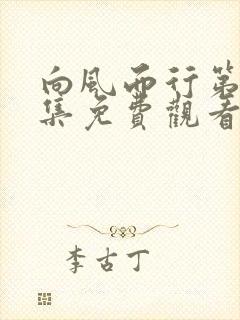 向風而行第
集免費觀看
李古丁